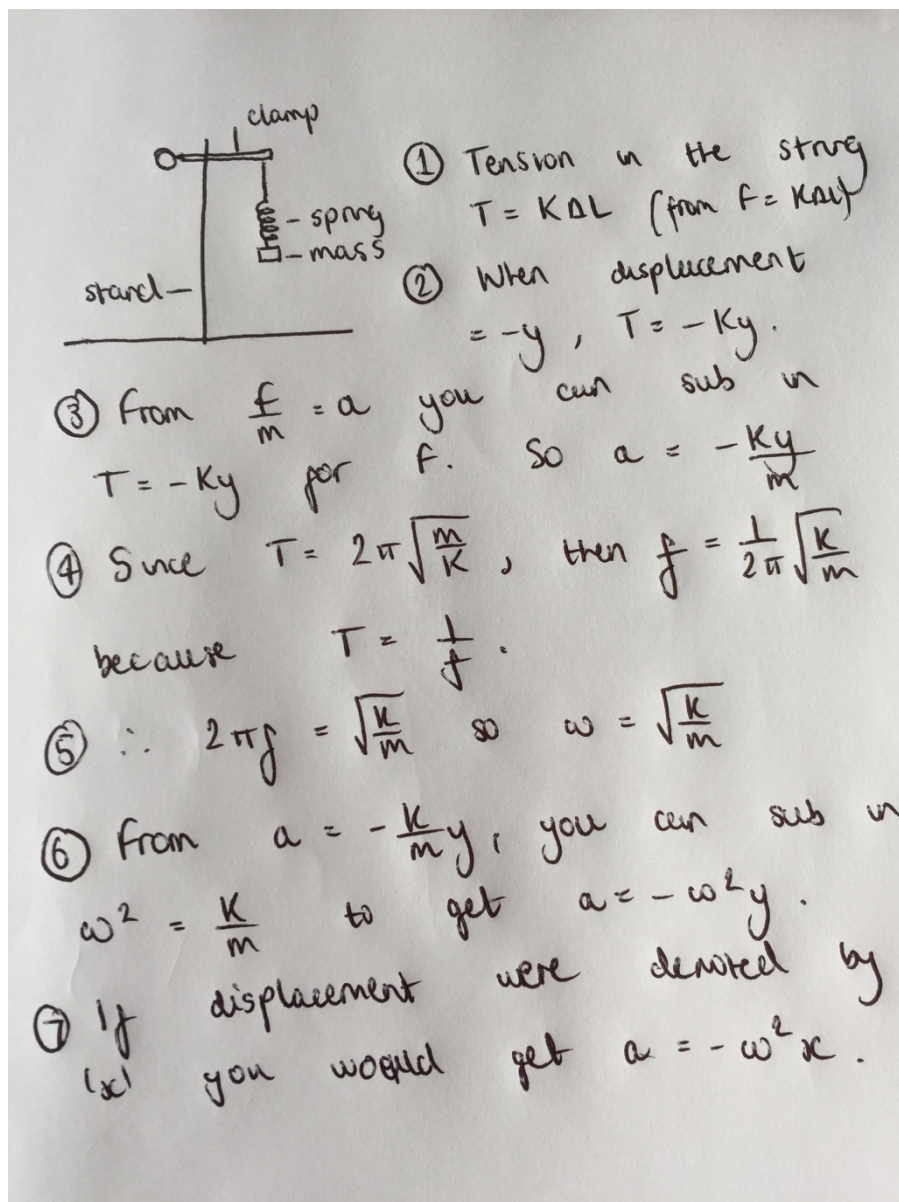 clamp
spring
mass
stand
① Tension in the string
T = KΔL (from F = KΔL)
② When displacement
= -y, T = -Ky.
③ From F/m = a you can sub in
T = -Ky for F. So a = -Ky/m
④ Since T = 2π√(m/K), then f = 1/2π √(K/m)
because T = 1/f.
⑤ ∴ 2πf = √(K/m) so ω = √(K/m)
⑥ From a = -K/m y, you can sub in
ω² = K/m to get a = -ω²y.
⑦ If displacement were denoted by
'x' you would get a = -ω²x.